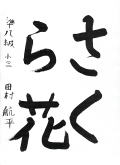 さく
ら花
準八級 小三
田村 航平